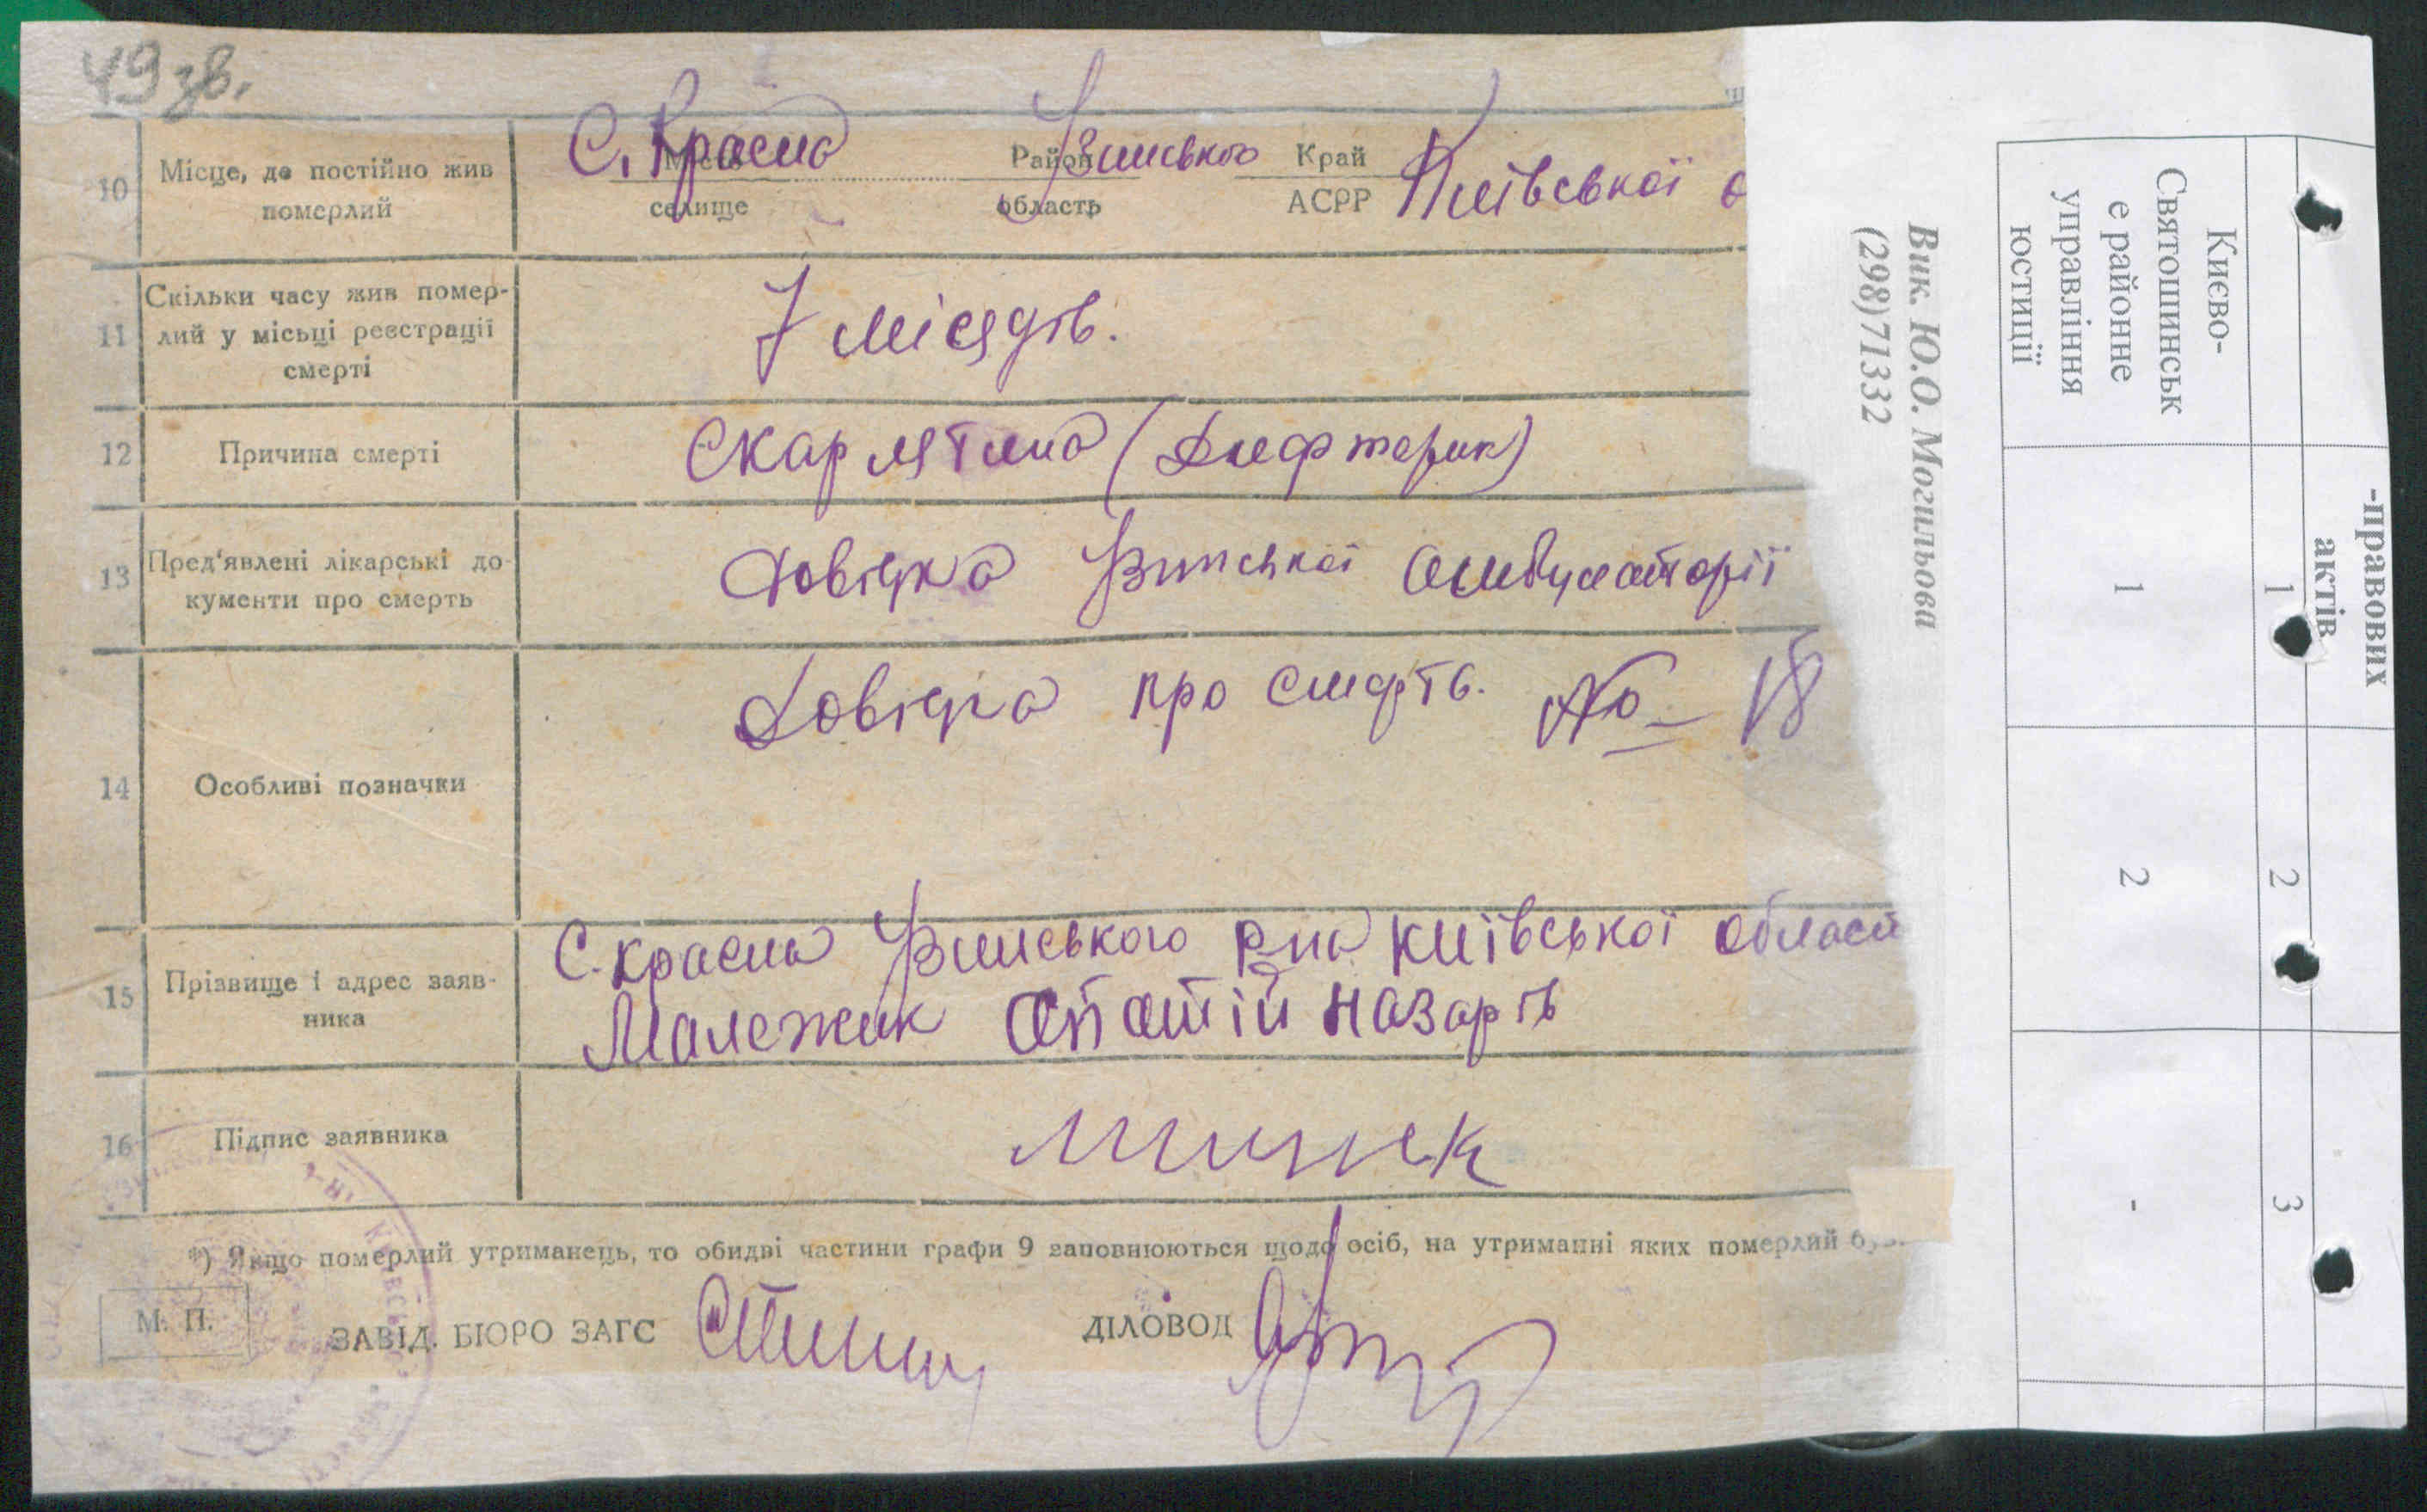 49 зв.
10
Місце, де постійно жив
померлий
Місто
селище
С. Красна
Район
область
Узинського
Край
АСРР
Київської о
11
Скільки часу жив помер-
лий у місьці реєстрації
смерті
7 місяців.
12
Причина смерті
Скарлятина (Дифтерик)
13
Пред'явлені лікарські до-
кументи про смерть
Довідка Узинської амбулаторії
14
Особливі позначки
Довідка про смерть. № 18
15
Прізвище і адрес заяв-
ника
С. Красна Узинського р-на Київської област
Малежик Опатій Назарів
16
Підпис заявника
*) Якщо померлий утриманець, то обидві частини графи 9 заповнюються щодо осіб, на утриманні яких померлий був.
М. П.
ЗАВІД. БЮРО ЗАГС
ДІЛОВОД
Вик. Ю.О. Могильова
(298)71332
-правових
актів
1
2
3
Києво-
Святошинськ
е районне
управління
юстиції
1
2
-